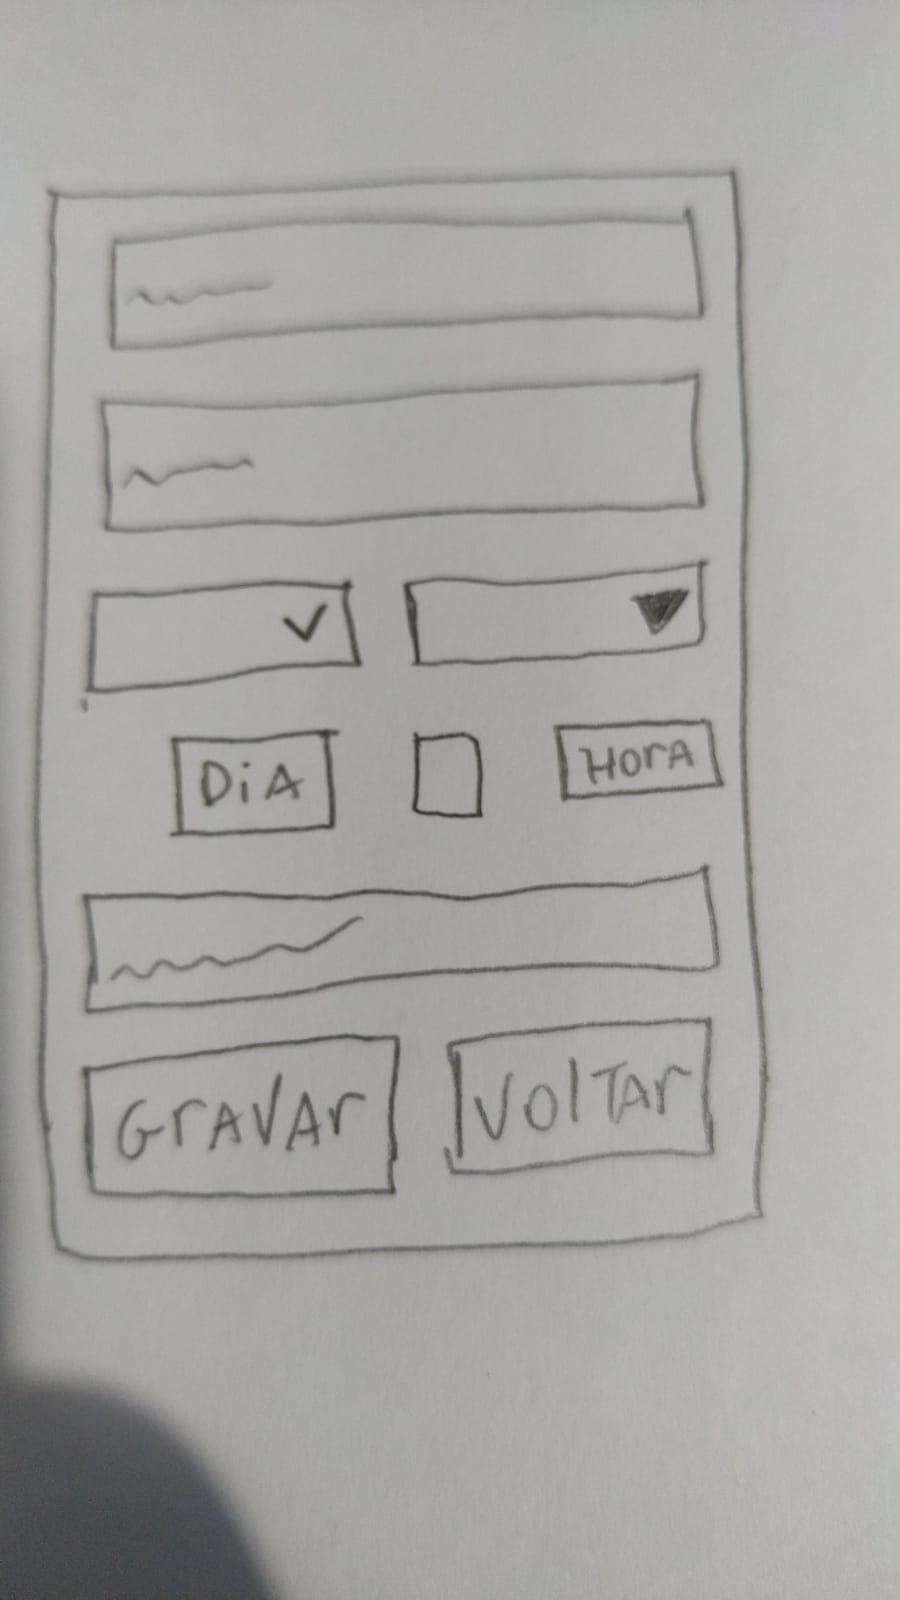 DiA
HorA
GrAVAr
VolTAr